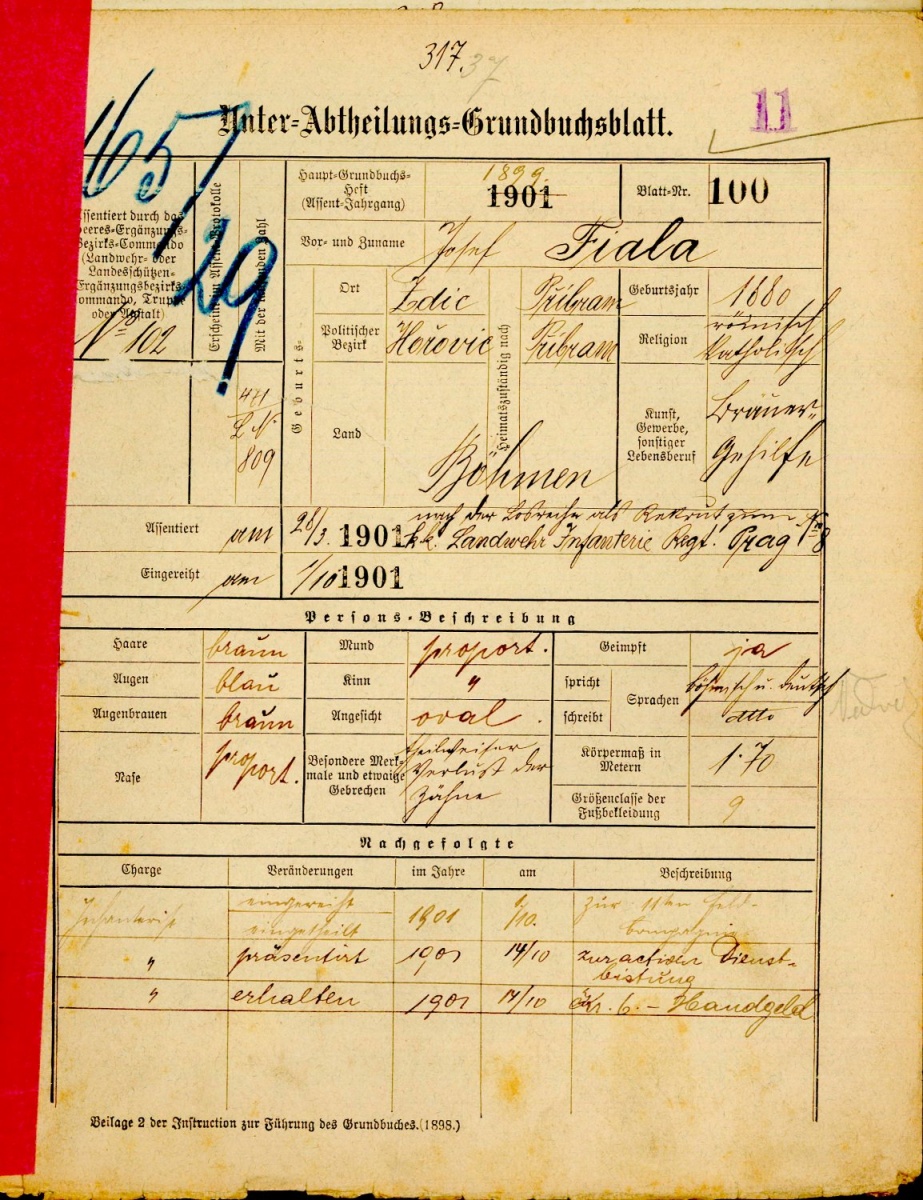 317. 37
Unter-Abtheilungs-Grundbuchsblatt.
11
1657
129
Assentiert durch das
Heeres-Ergänzungs-
Bezirks-Commando
(Landwehr- oder
Landesschützen-
Ergänzungsbezirks-
commando, Truppe
oder Anstalt)
№ 102
Erscheint im Assent-Protokolle
Mit der laufenden Zahl
471
L. N.
809
Haupt-Grundbuchs-
Heft
(Assent-Jahrgang)
1899.
1901
Blatt-Nr.
100
Vor- und Zuname
Josef Fiala
Geburts-
Ort
Zdic
Heimatszuständig nach
Přibram
Geburtsjahr
1880
Politischer
Bezirk
Hořovic
Přibram
Religion
römisch
katholisch
Land
Böhmen
Kunst,
Gewerbe,
sonstiger
Lebensberuf
Bräuer-
Gehilfe
Assentiert
am
28/3. 1901
nach der Losreihe als Rekrut zum
k.k. Landwehr Infanterie Regt. Prag № 8
Eingereiht
am
1/10 1901
Persons-Beschreibung
Haare
braun
Mund
proport.
Geimpft
ja
Augen
blau
Kinn
"
spricht
Sprachen
böhmisch u. deutsch
Augenbrauen
braun
Angesicht
oval.
schreibt
dtto
Nase
proport.
Besondere Merk-
male und etwaige
Gebrechen
theilweiser
Verlust der
Zähne
Körpermaß in
Metern
1·70
Größenclasse der
Fußbekleidung
9
Nachgefolgte
Charge
Veränderungen
im Jahre
am
Beschreibung
Infanterist
eingereiht
eingetheilt
1901
1/10.
zur 11ten Feld-
kompagnie
"
präsentirt
1901
14/10
zur activen Dienst-
leistung
"
erhalten
1901
14/10
Kr. 6.- Handgeld
Beilage 2 der Instruction zur Führung des Grundbuches. (1898.)